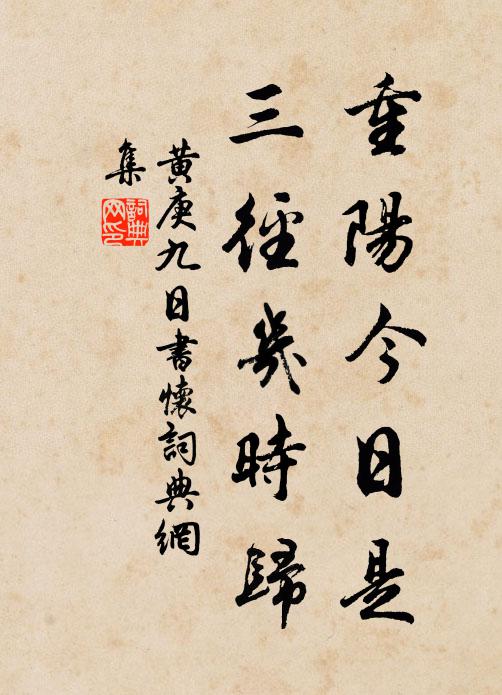 重陽今日是
三徑幾時歸
黃庚九日書懷詞典網
集
詞典網印